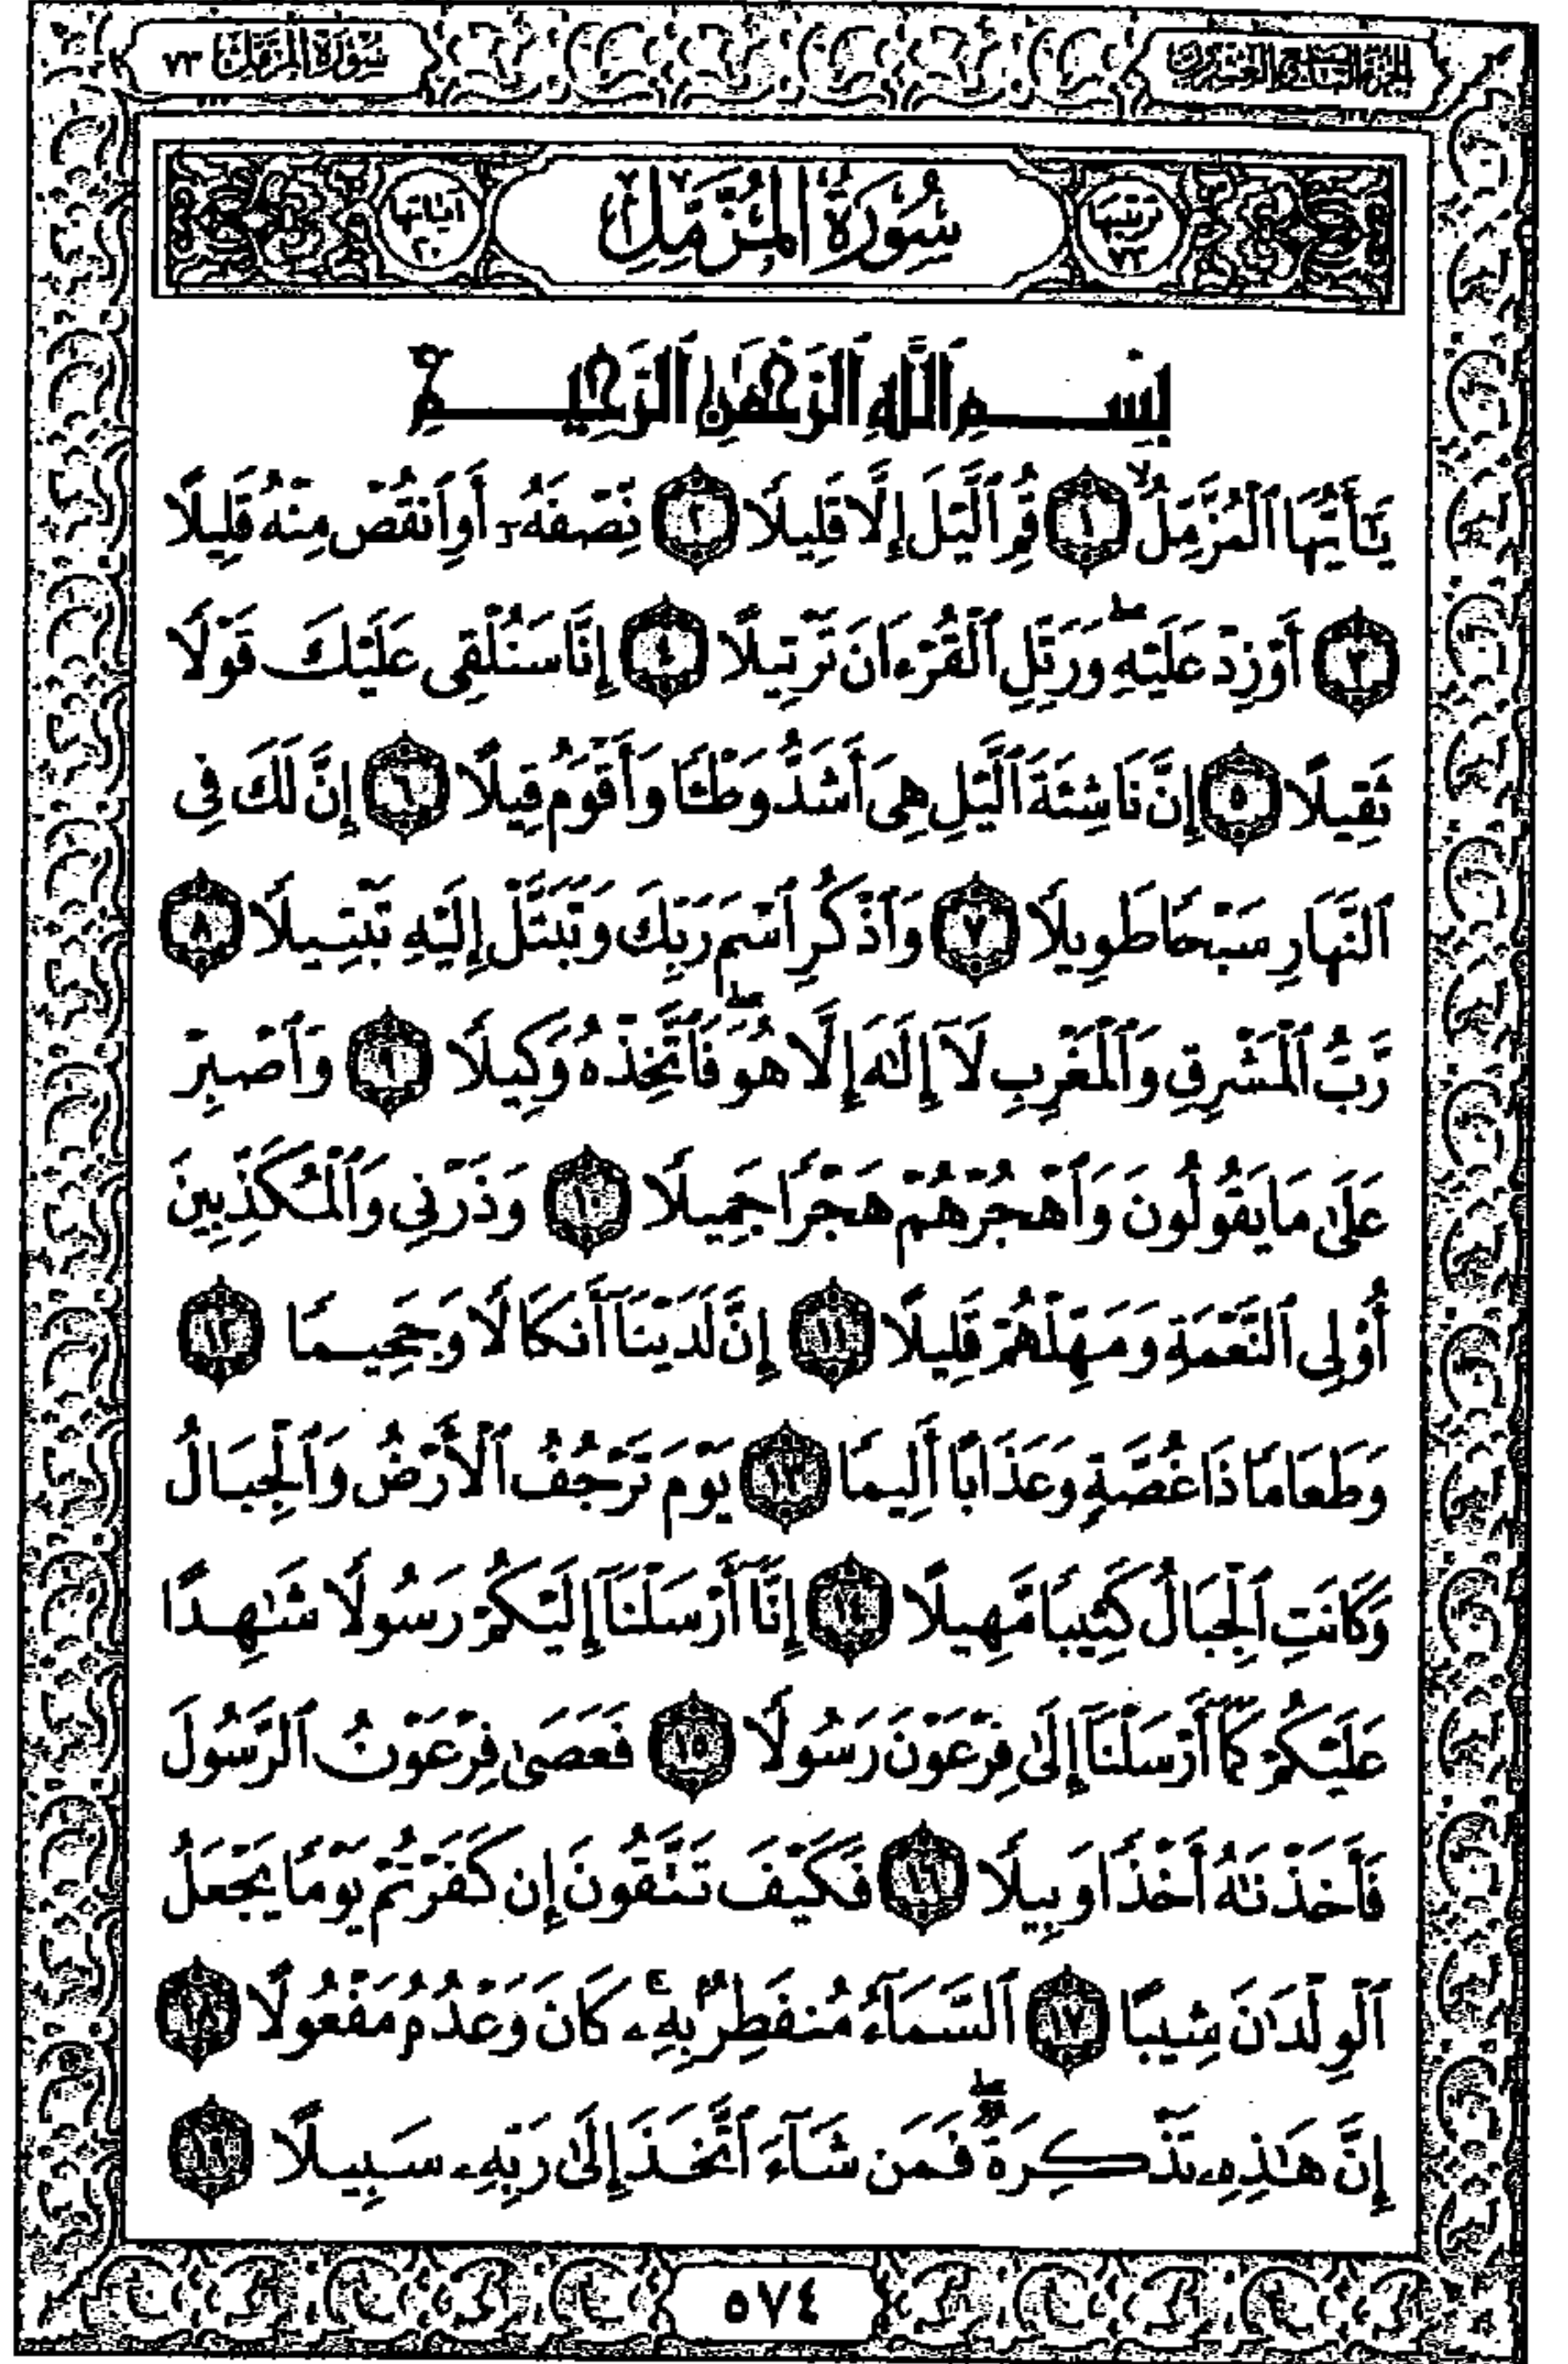 الجزء التاسع والعشرون
سُورَةُ المُزَّمِّل ٧٣
ترتيبها ٧٣
سُورَةُ المُزَّمِّلِ
آياتها ٢٠
بِسْمِ ٱللَّهِ ٱلرَّحْمَٰنِ ٱلرَّحِيمِ
يَٰٓأَيُّهَا ٱلْمُزَّمِّلُ ۙ ١ قُمِ ٱلَّيْلَ إِلَّا قَلِيلًا ٢ نِّصْفَهُۥٓ أَوِ ٱنقُصْ مِنْهُ قَلِيلًا
٣ أَوْ زِدْ عَلَيْهِ ۖ وَرَتِّلِ ٱلْقُرْءَانَ تَرْتِيلًا ٤ إِنَّا سَنُلْقِى عَلَيْكَ قَوْلًا
ثَقِيلًا ٥ إِنَّ نَاشِئَةَ ٱلَّيْلِ هِىَ أَشَدُّ وَطْـًٔا وَأَقْوَمُ قِيلًا ٦ إِنَّ لَكَ فِى
ٱلنَّهَارِ سَبْحًا طَوِيلًا ٧ وَٱذْكُرِ ٱسْمَ رَبِّكَ وَتَبَتَّلْ إِلَيْهِ تَبْتِيلًا ٨
رَّبُّ ٱلْمَشْرِقِ وَٱلْمَغْرِبِ لَآ إِلَٰهَ إِلَّا هُوَ ۖ فَٱتَّخِذْهُ وَكِيلًا ٩ وَٱصْبِرْ
عَلَىٰ مَا يَقُولُونَ وَٱهْجُرْهُمْ هَجْرًا جَمِيلًا ١٠ وَذَرْنِى وَٱلْمُكَذِّبِينَ
أُو۟لِى ٱلنَّعْمَةِ وَمَهِّلْهُمْ قَلِيلًا ١١ إِنَّ لَدَيْنَآ أَنكَالًا وَجَحِيمًا ١٢
وَطَعَامًا ذَا غُصَّةٍ وَعَذَابًا أَلِيمًا ١٣ يَوْمَ تَرْجُفُ ٱلْأَرْضُ وَٱلْجِبَالُ
وَكَانَتِ ٱلْجِبَالُ كَثِيبًا مَّهِيلًا ١٤ إِنَّآ أَرْسَلْنَآ إِلَيْكُمْ رَسُولًا شَٰهِدًا
عَلَيْكُمْ كَمَآ أَرْسَلْنَآ إِلَىٰ فِرْعَوْنَ رَسُولًا ١٥ فَعَصَىٰ فِرْعَوْنُ ٱلرَّسُولَ
فَأَخَذْنَٰهُ أَخْذًا وَبِيلًا ١٦ فَكَيْفَ تَتَّقُونَ إِن كَفَرْتُمْ يَوْمًا يَجْعَلُ
ٱلْوِلْدَٰنَ شِيبًا ١٧ ٱلسَّمَآءُ مُنفَطِرٌۢ بِهِۦ ۚ كَانَ وَعْدُهُۥ مَفْعُولًا ١٨
إِنَّ هَٰذِهِۦ تَذْكِرَةٌ ۖ فَمَن شَآءَ ٱتَّخَذَ إِلَىٰ رَبِّهِۦ سَبِيلًا ١٩
٥٧٤